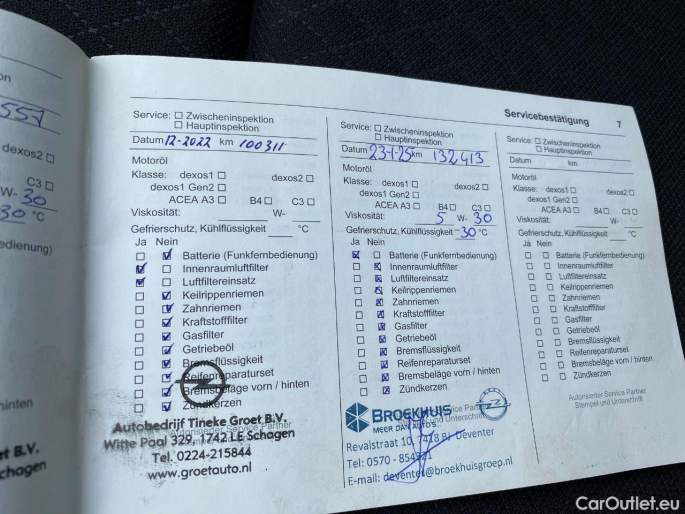 557
dexos2
C3
W- 30
30 °C
edienung)
hinten
t B.V.
chagen
Service: Zwischeninspektion
Hauptinspektion
Datum 12-2022 km 100311
Motoröl
Klasse: dexos1 dexos2
dexos1 Gen2
ACEA A3 B4 C3
Viskosität: W-
Gefrierschutz, Kühlflüssigkeit °C
Ja Nein
Batterie (Funkfernbedienung)
Innenraumluftfilter
Luftfiltereinsatz
Keilrippenriemen
Zahnriemen
Kraftstofffilter
Gasfilter
Getriebeöl
Bremsflüssigkeit
Reifenreparaturset
Bremsbeläge vorn / hinten
Zündkerzen
Autorisierter Service Partner
Autobedrijf Tineke Groet B.V.
Witte Paal 329, 1742 LE Schagen
Tel. 0224-215844
www.groetauto.nl
Service: Zwischeninspektion
Hauptinspektion
Datum 23-1-25 km 132413
Motoröl
Klasse: dexos1 dexos2
dexos1 Gen2
ACEA A3 B4 C3
Viskosität: 5 W- 30
Gefrierschutz, Kühlflüssigkeit -30 °C
Ja Nein
Batterie (Funkfernbedienung)
Innenraumluftfilter
Luftfiltereinsatz
Keilrippenriemen
Zahnriemen
Kraftstofffilter
Gasfilter
Getriebeöl
Bremsflüssigkeit
Reifenreparaturset
Bremsbeläge vorn / hinten
Zündkerzen
Service Partner
und Unterschrift
BROEKHUIS
MEER DAN AUTO'S
Revalstraat 10, 7418 BJ Deventer
Tel: 0570 -
E-mail: deventer@broekhuisgroep.nl
Servicebestätigung 7
Service: Zwischeninspektion
Hauptinspektion
Datum km
Motoröl
Klasse: dexos1 dexos2
dexos1 Gen2
ACEA A3 B4 C3
Viskosität: W-
Gefrierschutz, Kühlflüssigkeit °C
Ja Nein
Batterie (Funkfernbedienung)
Innenraumluftfilter
Luftfiltereinsatz
Keilrippenriemen
Zahnriemen
Kraftstofffilter
Gasfilter
Getriebeöl
Bremsflüssigkeit
Reifenreparaturset
Bremsbeläge vorn / hinten
Zündkerzen
Autorisierter Service Partner
Stempel und Unterschrift
CarOutlet.eu